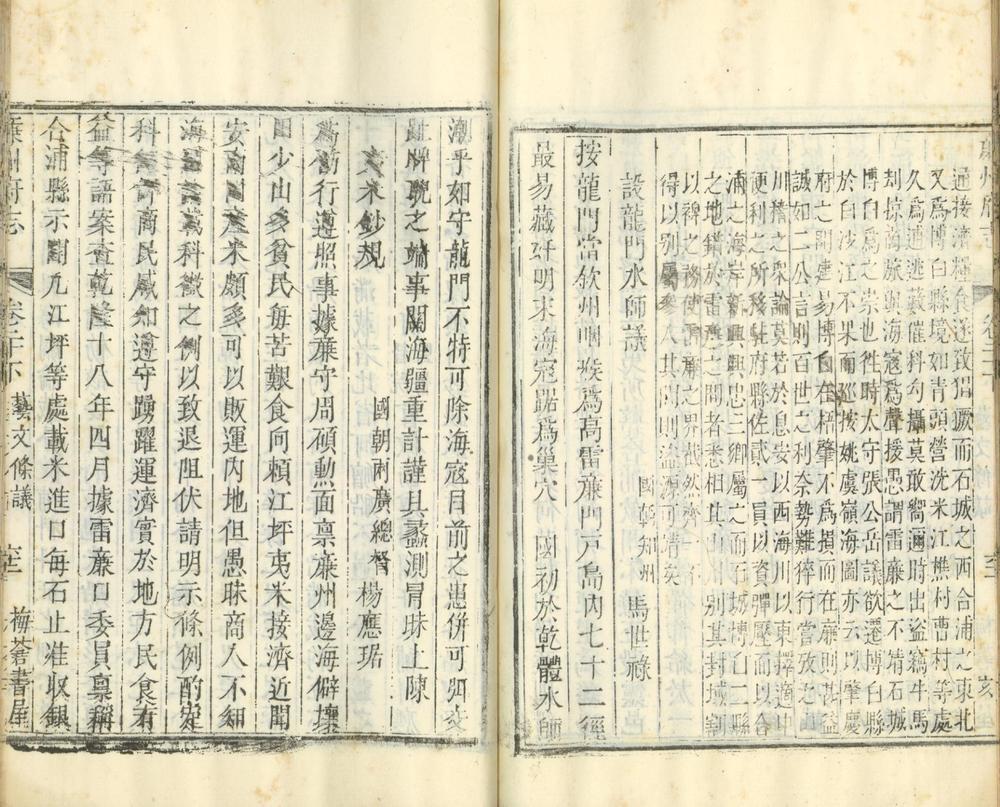 通接濟糧食遂致猖獗而石城之西合浦之東北
又爲博白縣境如青頭營洗米江樵村曹村等處
久爲逋逃藪催科勾攝莫敢嚮邇時出盜竊牛馬
刦掠商旅與海寇爲聲援愚謂雷廉之不靖石城
博白爲之祟也徃時太守張公岳議欲遷博白縣
於白沙江不果而廵按姚虞嶺海圖亦云以肇慶
府之開建易博白在梧肇不爲損而在廉則甚益
誠如二公言則百世之利奈勢難猝行當攺之西
川擠之衆論莫若於息安以西海川以東擇適中
便利之所移駐府縣佐貳一員以資彈壓而以合
浦之海岸新興興忠三鄉屬之而石城博白二縣
之地錯於雷廉之間者悉相其山川别其封域割
以裨之務使雷廉之界截然齊一不
得以别屬參入其間則盜源可靖矣
設龍門水師議
國朝知州 馬世祿
按龍門當欽州咽喉爲高雷廉門戸島内七十二徑
最易藏奸明末海寇踞爲巢穴 國初於乾體水師
潮乎如守龍門不特可除海寇目前之患併可弭交
趾睥睨之端事關海疆重計謹具蠡測冒昧上陳
夷米鈔規
國朝兩廣總督 楊應琚
爲飭行遵照事據廉守周碩勲面禀廉州邊海僻壤
田少山多貧民每苦艱食向頼江坪夷米接濟近聞
安南田產米頗多可以販運内地但愚昧商人不知
海 科徵之例以致退阻伏請明示條例酌定
科 商民咸知遵守踴躍運濟實於地方民食有
益等語案查乾隆十八年四月據雷廉口委員禀稱
合浦縣示開九江坪等處載米進口每石止准收銀
廉州府志 卷二十下 藝文 條議 梅菴書屋